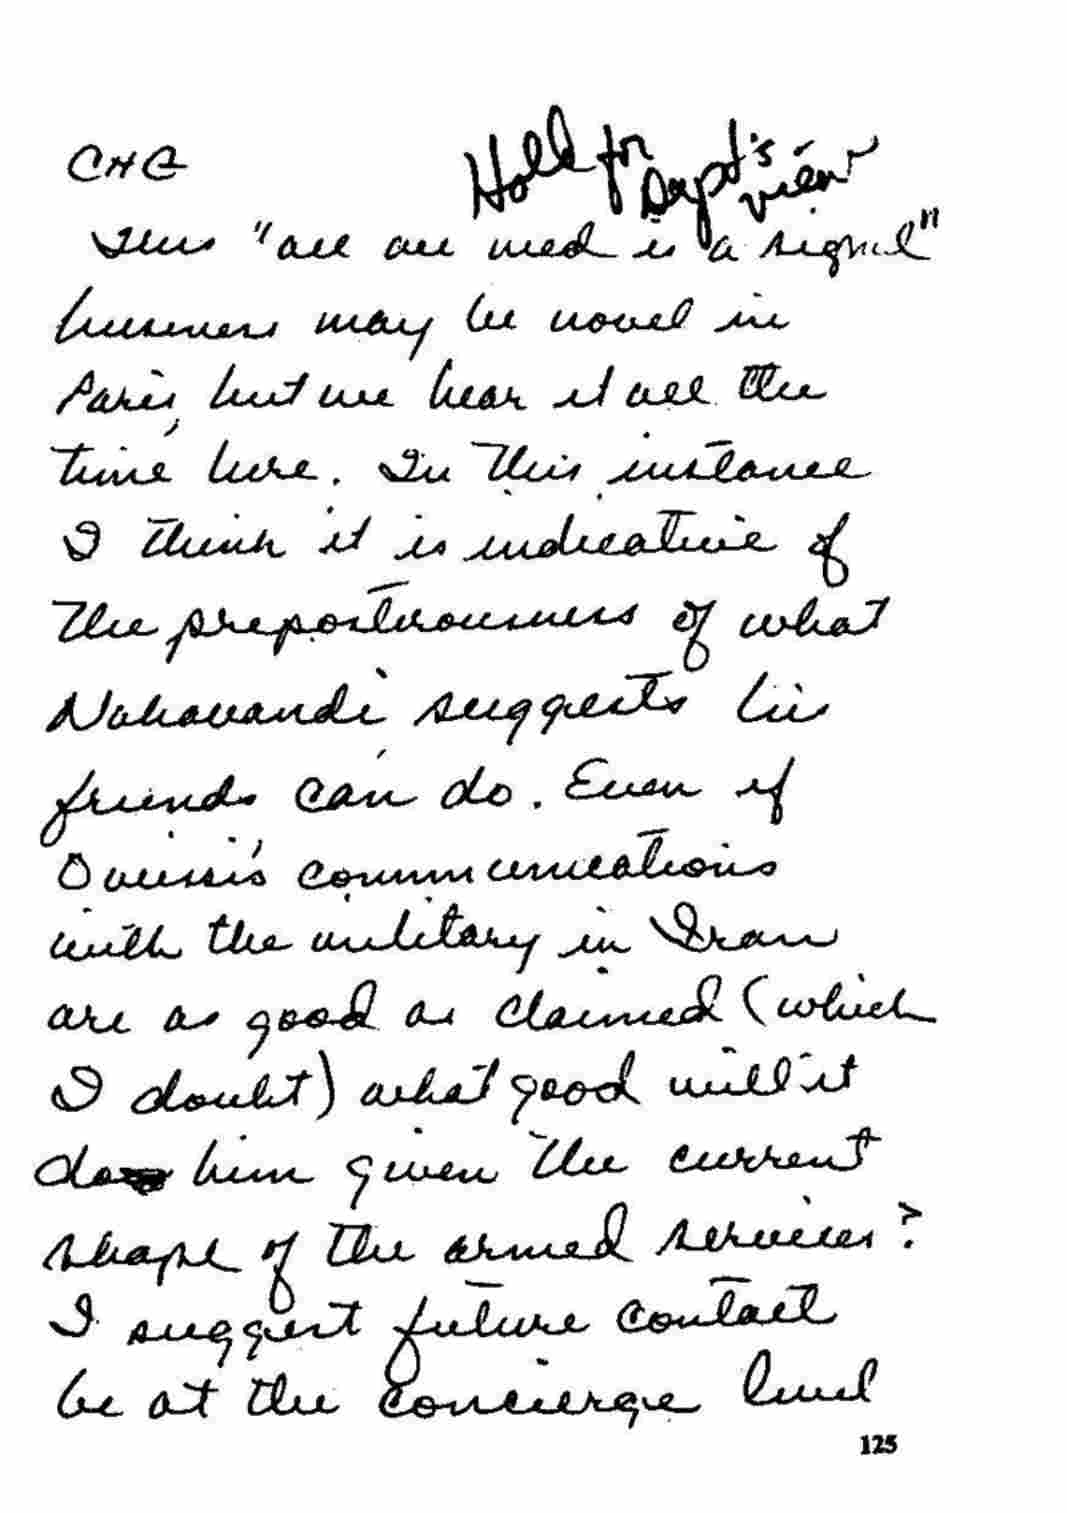 CHG
Hold for
Dept's
view
This "all au med is a signal"
business may be novel in
Paris, but we hear it all the
time here. In this instance
I think it is indicative of
the preposterousness of what
Nahavandi suggests his
friends can do. Even if
Oveissi's communications
with the military in Iran
are as good as claimed (which
I doubt) what good will it
do him given the current
shape of the armed services?
I suggest future contact
be at the concierge level
125